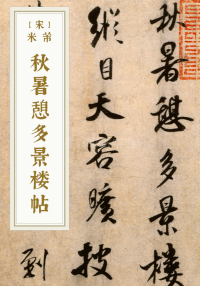 [宋]
米芾
秋暑憩多景楼帖
秋暑憩多景樓
縱目天容曠披
到